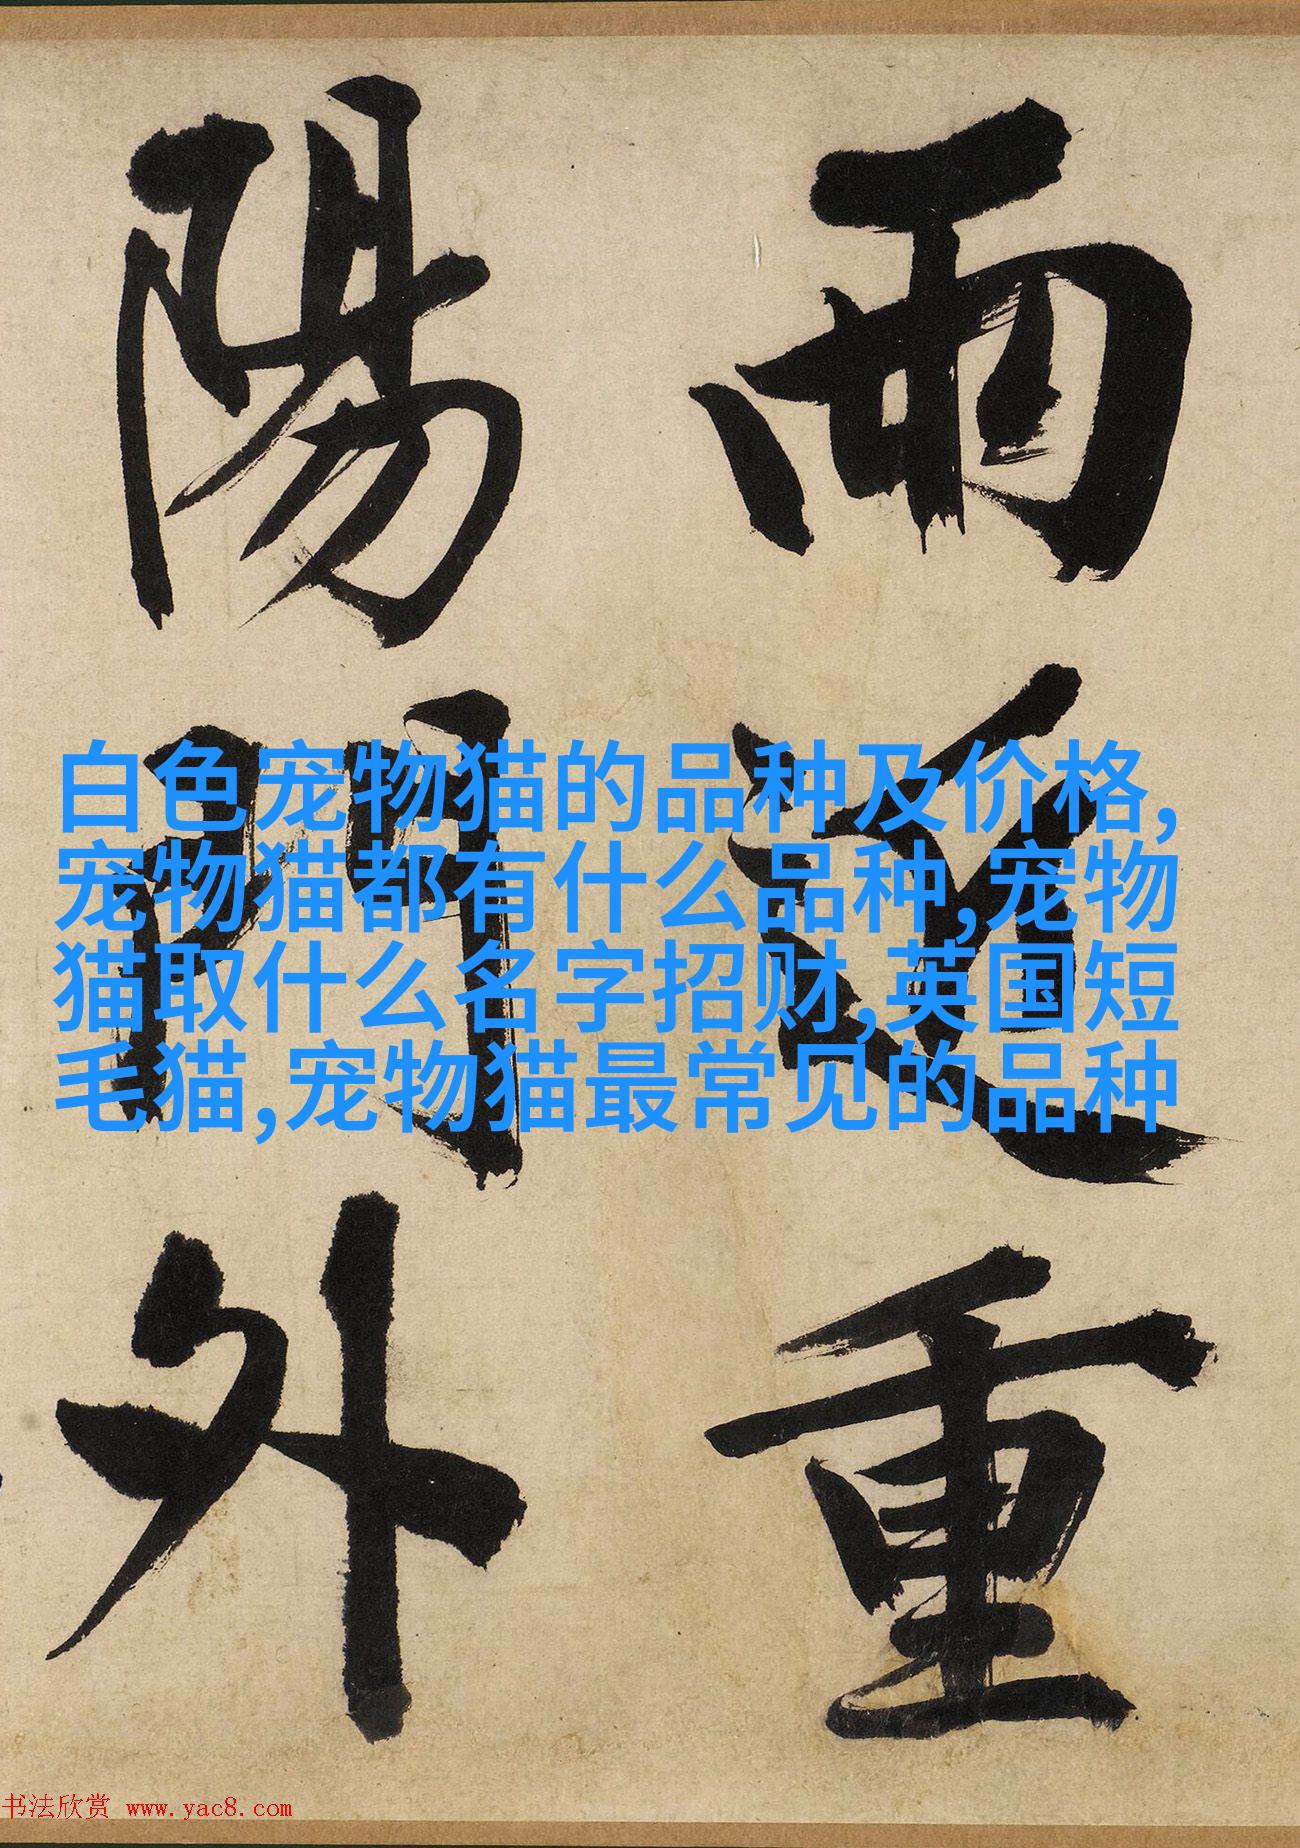 雨近重
陽門外
白色宠物猫的品种及价格,
宠物猫都有什么品种,宠物
猫取什么名字招财,英国短
毛猫,宠物猫最常见的品种
书法欣赏 www.yac8.com